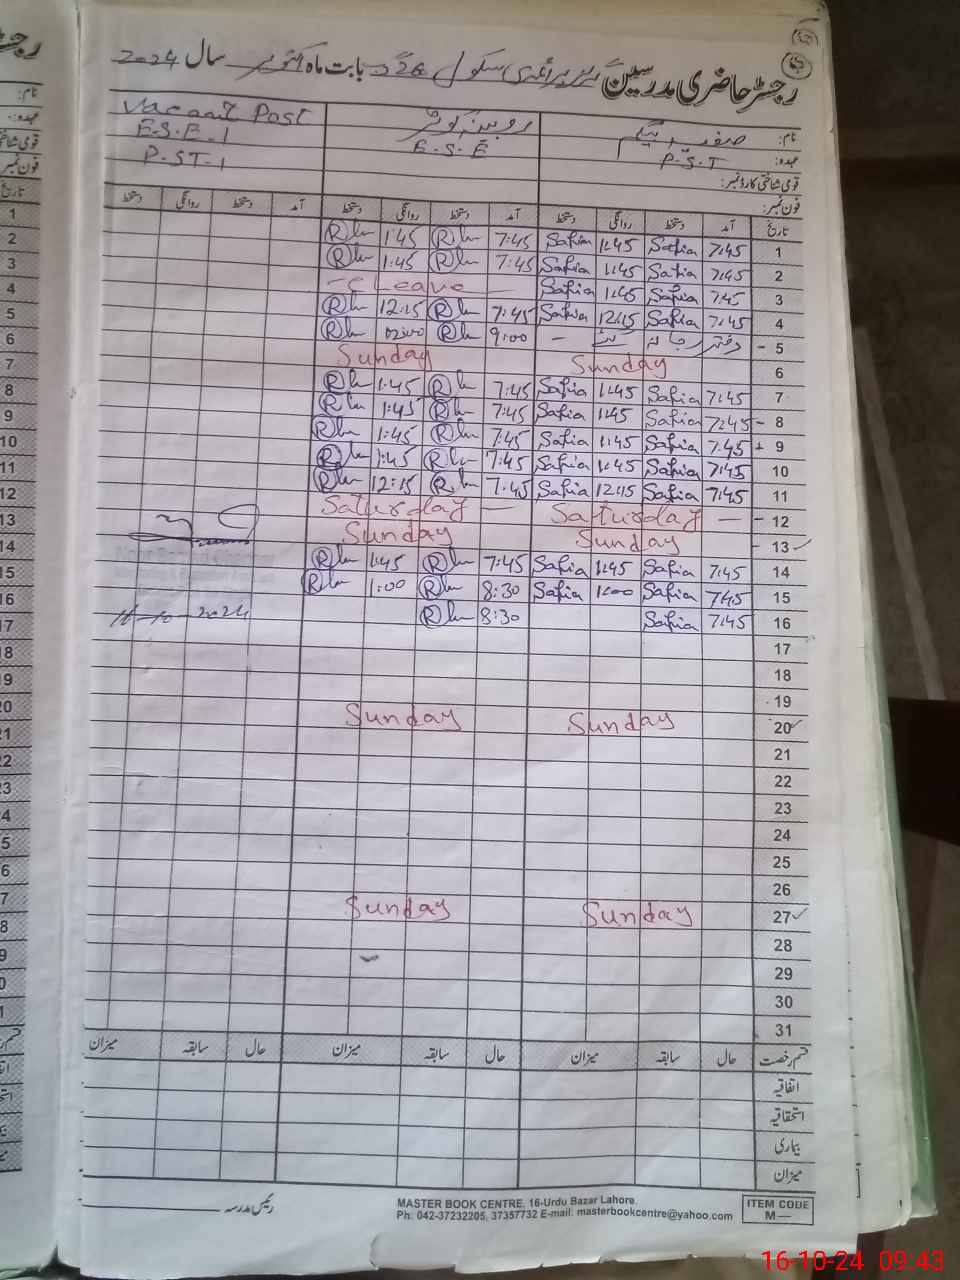 رجسٹر حاضری مدرسین گورنمنٹ پرائمری سکول 26 بابت ماہ اکتوبر سال 2024
نام: صفیہ بیگم روبینہ کوثر Vacant Post
عہدہ: P.S.T E.S.E E.S.E-1
قومی شناختی کارڈ نمبر: P.ST-1
فون نمبر:
تاریخ آمد دستخط روانگی دستخط آمد دستخط روانگی دستخط آمد دستخط روانگی دستخط
1 7:45 Safia 1:45 Safia 7:45 1:45
2 7:45 Safia 1:45 Safia 7:45 1:45
3 7:45 Safia 1:45 Safia - C Leave -
4 7:45 Safia 12:15 Safia 7:45 12:15
5 - دفتر جانا 9:00 02:00
6 Sunday Sunday
7 7:45 Safia 1:45 Safia 7:45 1:45
8 - 7:45 Safia 1:45 Safia 7:45 1:45
9 7:45 Safia 1:45 Safia 7:45 1:45
10 7:45 Safia 1:45 Safia 7:45 1:45
11 7:45 Safia 12:15 Safia 7:45 12:15
12 - Saturday - Saturday -
13 - Sunday Sunday
14 7:45 Safia 1:45 Safia 7:45 1:45
15 7:45 Safia 1:00 Safia 8:30 1:00
16 7:45 Safia 8:30 16-10-2024
17
18
19
20 Sunday Sunday
21
22
23
24
25
26
27 Sunday Sunday
28
29
30
31
قسم رخصت حال سابقہ میزان حال سابقہ میزان حال سابقہ میزان
اتفاقیہ
استحقاقیہ
بیماری
میزان
رئیس مدرسہ
MASTER BOOK CENTRE, 16-Urdu Bazar Lahore.
Ph: 042-37232205, 37357732 E-mail: masterbookcentre@yahoo.com
ITEM CODE
M—
16-10-24 09:43